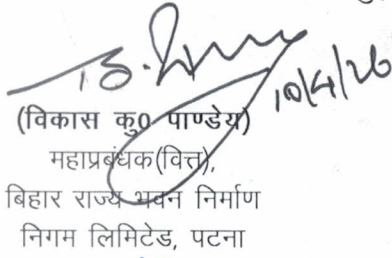 10/4/26
(विकास कु0 पाण्डेय)
महाप्रबंधक(वित्त),
बिहार राज्य भवन निर्माण
निगम लिमिटेड, पटना